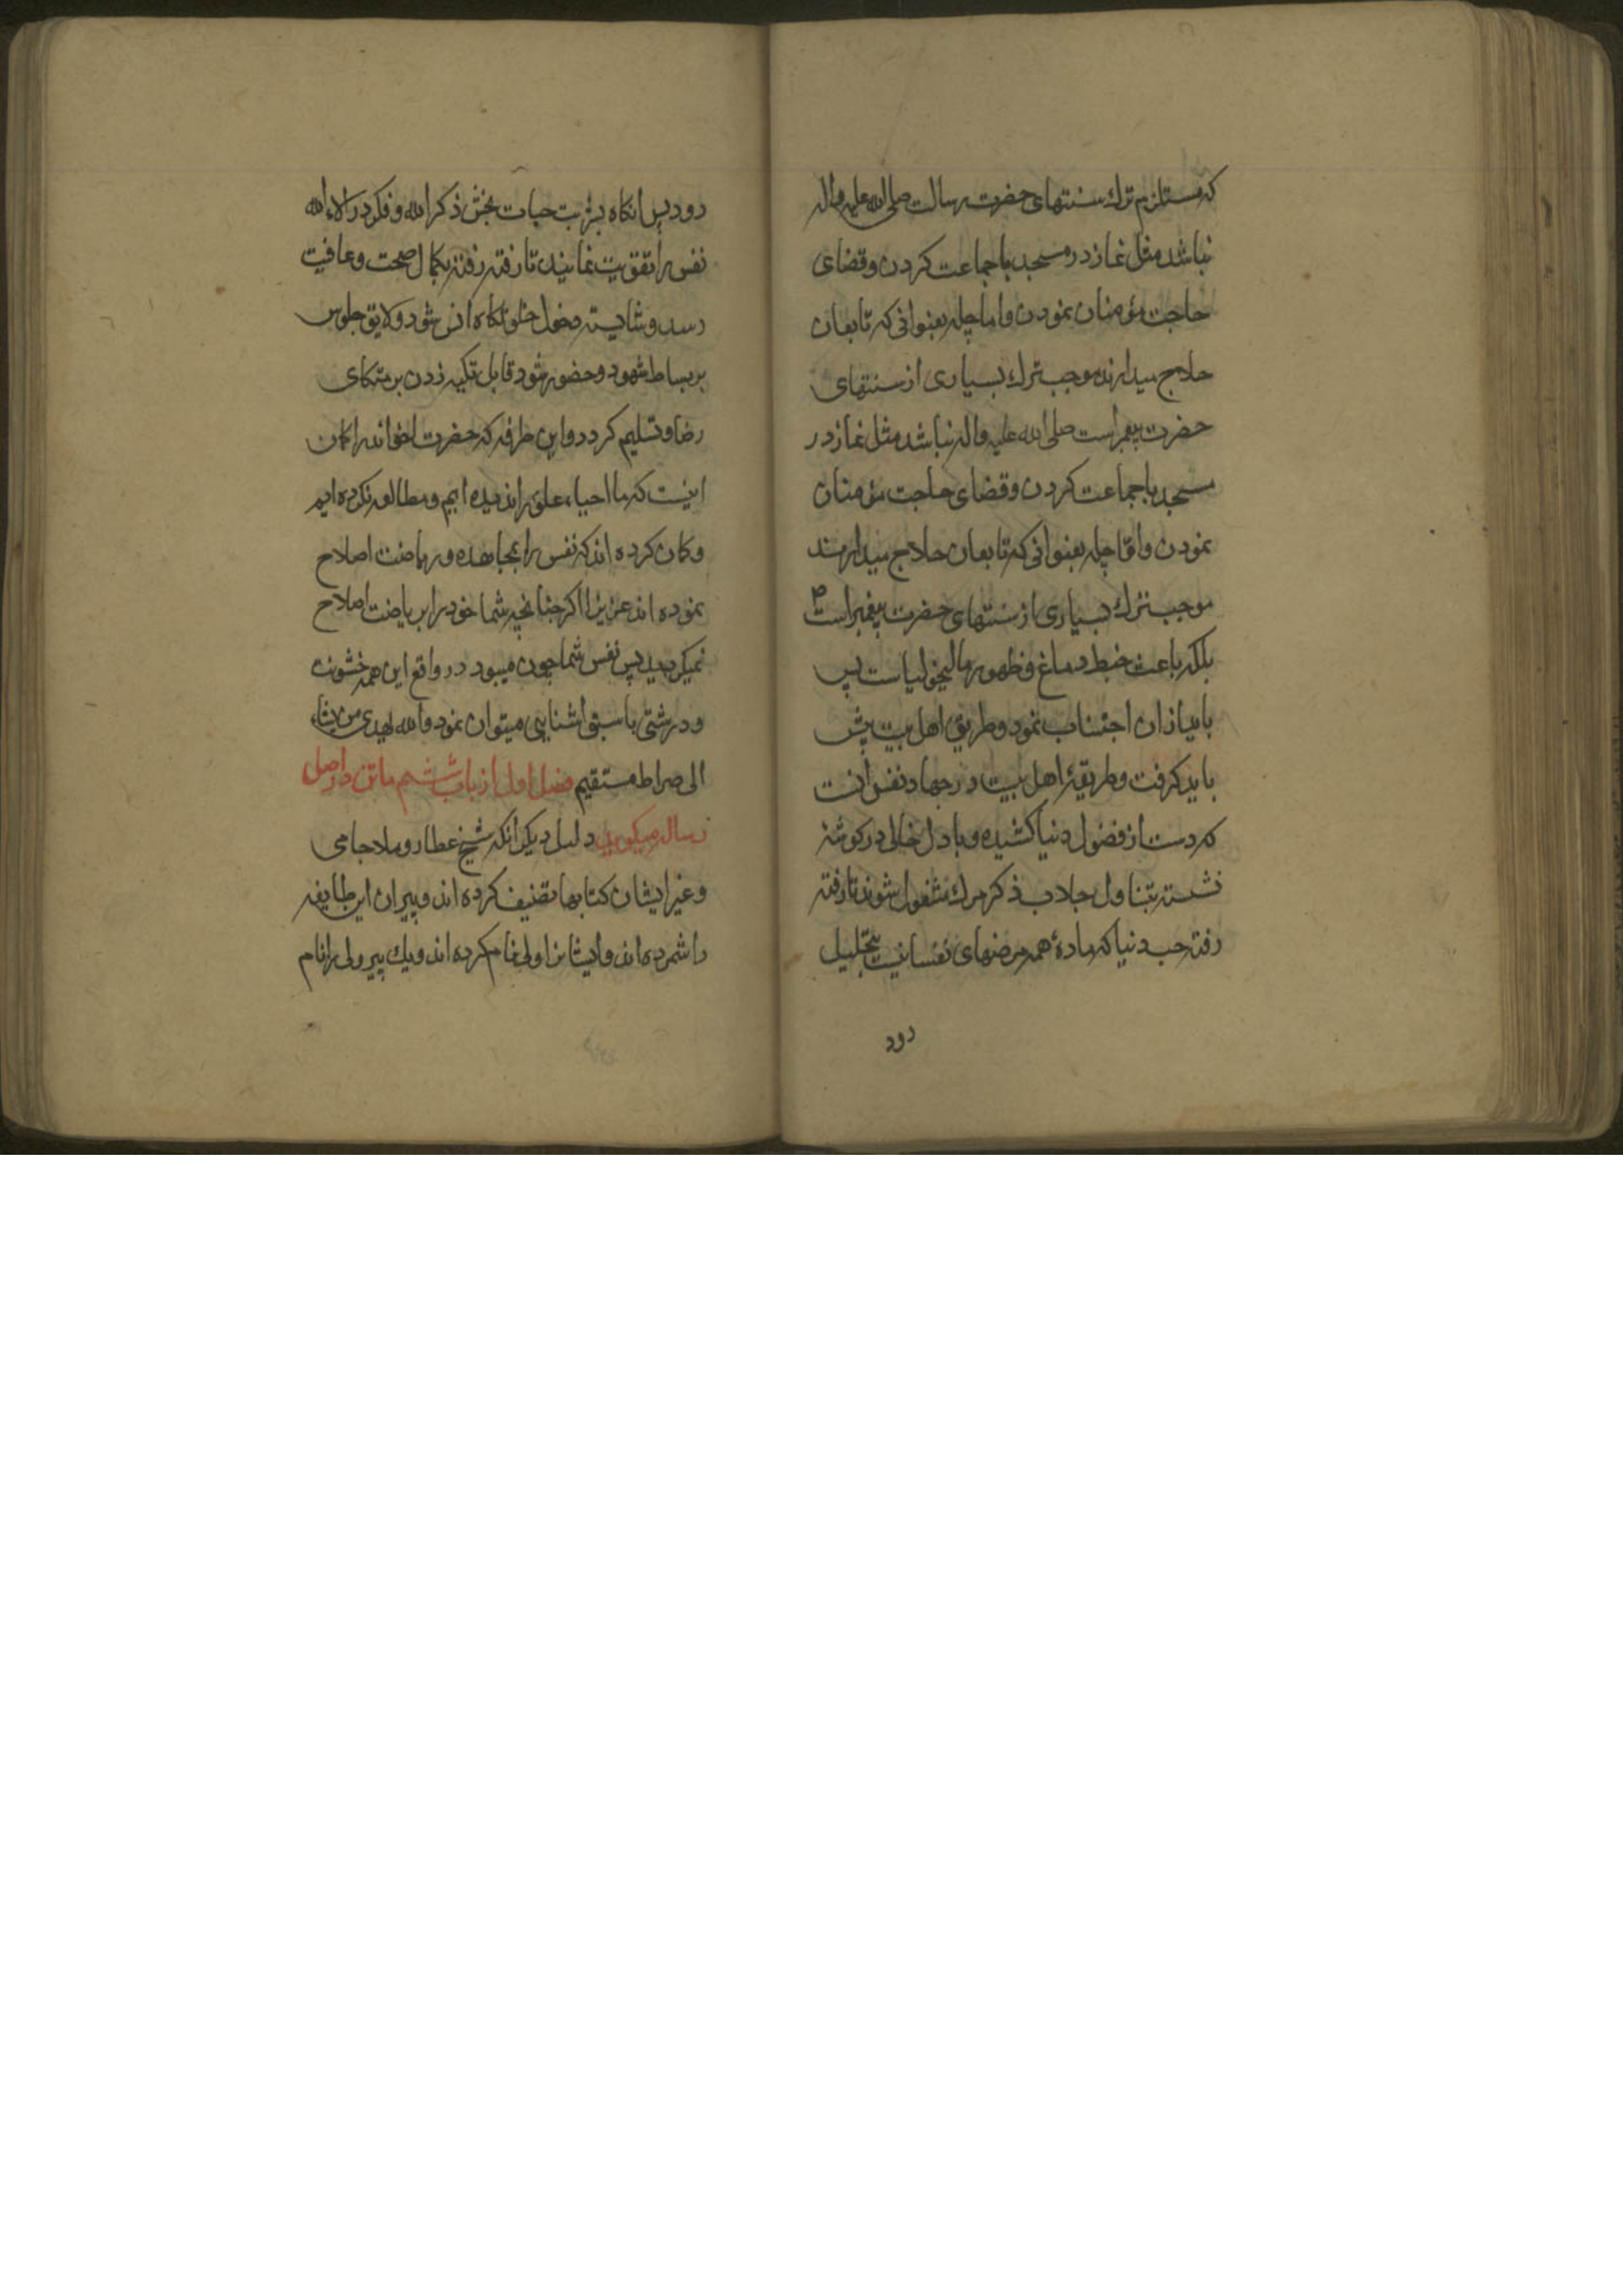 که مستلزم ترك سنتهای حضرت رسالت صلی الله علیه واله
نباشد مثل نماز در مسجد با جماعت کردن و قضای
حاجت مؤمنان نمودن و اما چله بعنوانی که تابعان
حلاج میدارند موجب ترك بسیاری از سنتهای
حضرت پیغمبر است صلی الله علیه واله نباشد مثل نماز در
مسجد با جماعت کردن و قضای حاجت مؤمنان
نمودن و امّا چله بعنوانی که تابعان حلاج میدارند
موجب ترك بسیاری از سنتهای حضرت پیغمبر است ص
بلکه باعث خبط دماغ و ظهور مالیخولیاست پس
باید از ان اجتناب نمود و طریق اهل بیت پیش
باید کرفت و طریقهٔ اهل بیت در جهاد نفس انست
که دست از فضول دنیا کشیده و با دل خالی در کوشهٔ
نشسته بتناول جلاب ذکر مرك مشغول شوند تا رفته
رفته حب دنیا که مادهٔ همه مرضهای نفسانیت بتحلیل
رود
رود پس انکاه بشربت حیات بخش ذکر الله و فکر در الاء الله
نفس را تقویت نمایند تا رفته رفته بکمال صحت و عافیت
رسد و شایسته دخول خلوتکاه انس شود و لایق جلوس
بر بساط شهود و حضور شود قابل تکیه زدن بر متکای
رضا و تسلیم کردد و این طرفه که حضرت اخوند را کمان
اینست که ما احیاء علوم را ندیده ایم و مطالعه نکرده ایم
و کمان کرده اند که نفس را بمجاهده و ریاضت اصلاح
نموده اند عزیزا اکر چنانچه شما خود را بریاضت اصلاح
نمیکردید پس نفس شما چون میبود در واقع این همه خشونت
و درشتی با سبق اشنایی میتوان نمود والله یهدی من یشاء
الی صراط مستقیم فصل اول از باب ششم ماتن در اصل
رساله میکوید دلیل دیکر انکه شیخ عطار و ملا جامی
و غیر ایشان کتابها تصنیف کرده اند و پیران این طایفه
را شمرده اند و ایشانرا ولی نام کرده اند و یك پیر ولی را نام